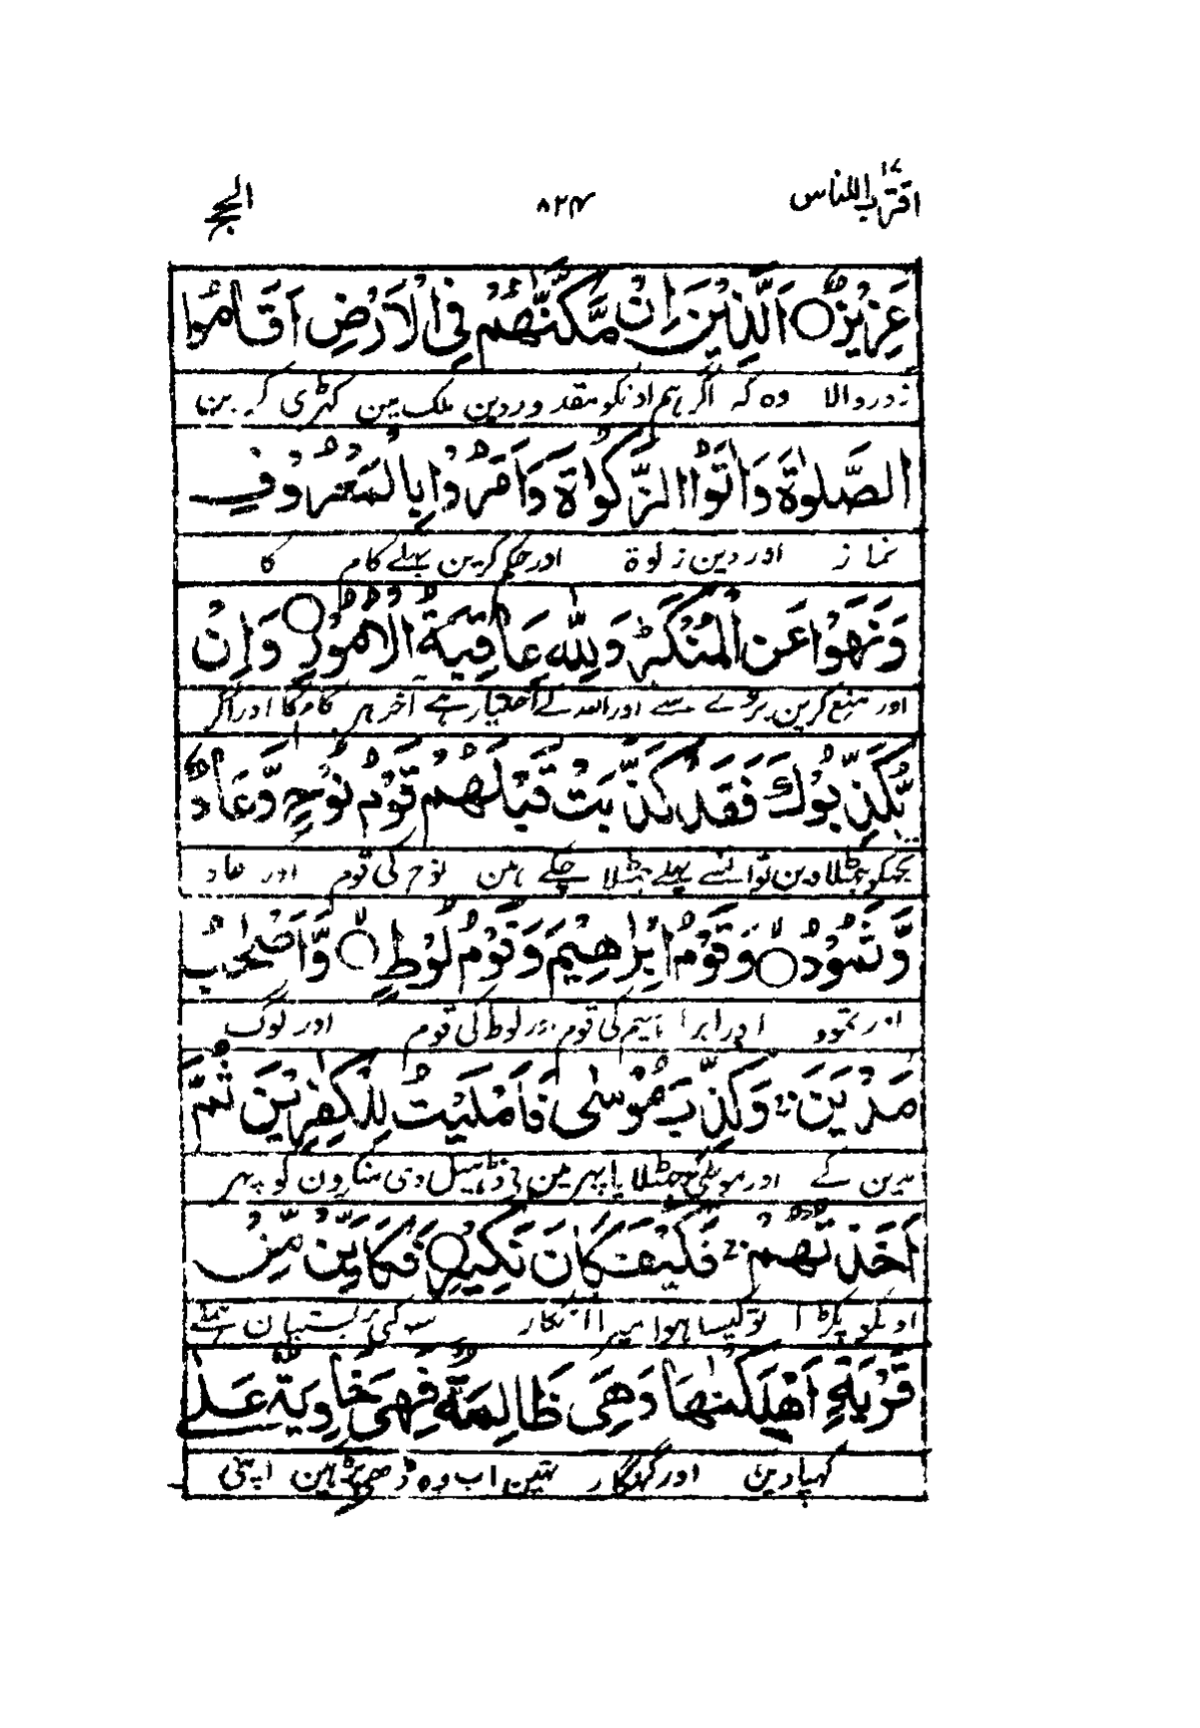 اقترب للناس ١٧ ٨٢٤ الحج
عَزِيْزٌ ○ اَلَّذِيْنَ اِنْ مَّكَّنّٰهُمْ فِي الْاَرْضِ اَقَامُوا
زوروالا وہ کہ اگر ہم اونکو مقدور دین ملک مین کھڑی کرین
الصَّلٰوةَ وَاٰتَوُا الزَّكٰوةَ وَاَمَرُوْا بِالْمَعْرُوْفِ
نماز اور دین زکوة اور حکم کرین بھلے کام کا
وَنَهَوْا عَنِ الْمُنْكَرِ ؕ وَلِلّٰهِ عَاقِبَةُ الْاُمُوْرِ ○ وَاِنْ
اور منع کرین برے سے اور اللہ کے اختیار ہے آخر ہر کام کا اور اگر
يُّكَذِّبُوْكَ فَقَدْ كَذَّبَتْ قَبْلَهُمْ قَوْمُ نُوْحٍ وَّعَادٌ
تجھکو جھٹلاوین تو انسے پہلے جھٹلا چکے ہین نوح کی قوم اور عاد
وَّثَمُوْدُ ۙ○ وَقَوْمُ اِبْرٰهِيْمَ وَقَوْمُ لُوْطٍ ۙ○ وَّاَصْحٰبُ
اور ثمود اور ابراہیم کی قوم اور لوط کی قوم اور لوگ
مَدْيَنَ ۚ وَكُذِّبَ مُوْسٰى فَاَمْلَيْتُ لِلْكٰفِرِيْنَ ثُمَّ
مدین کے اور موسٰی کو جھٹلایا پھر مین نے ڈھیل دی منکرون کو پھر
اَخَذْتُهُمْ ۚ فَكَيْفَ كَانَ نَكِيْرِ ○ فَكَاَيِّنْ مِّنْ
اونکو پکڑا تو کیسا ہوا میرا انکار سو کئی بستیان
قَرْيَةٍ اَهْلَكْنٰهَا وَهِيَ ظَالِمَةٌ فَهِيَ خَاوِيَةٌ عَلٰى
کھپا دین اور گنہگار تھین اب وہ ڈھی پڑی ہین اپنی